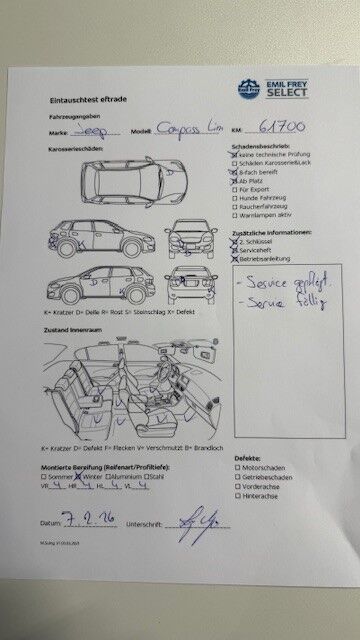 EMIL FREY
SELECT
Eintauschtest eftrade
Fahrzeugangaben
Marke: Jeep Modell: Compass Lim KM: 61700
Karosserieschäden:
Schadensbeschrieb:
☒ keine technische Prüfung
☐ Schäden Karosserie&Lack
☒ 8-fach bereift
☒ Ab Platz
☐ Für Export
☐ Hunde Fahrzeug
☐ Raucherfahrzeug
☐ Warnlampen aktiv
Zusätzliche Informationen:
☒ 2. Schlüssel
☒ Serviceheft
☒ Betriebsanleitung
- Service gepflegt.
- Service fällig
K= Kratzer D= Delle R= Rost S= Steinschlag X= Defekt
Zustand Innenraum
K= Kratzer D= Defekt F= Flecken V= Verschmutzt B= Brandloch
Montierte Bereifung (Reifenart/Profiltiefe):
☐ Sommer ☒ Winter ☐ Aluminium ☐ Stahl
VR 4 HR 4 HL 4 VL 4
Defekte:
☐ Motorschaden
☐ Getriebeschaden
☐ Vorderachse
☐ Hinterachse
Datum: 7.2.26 Unterschrift: